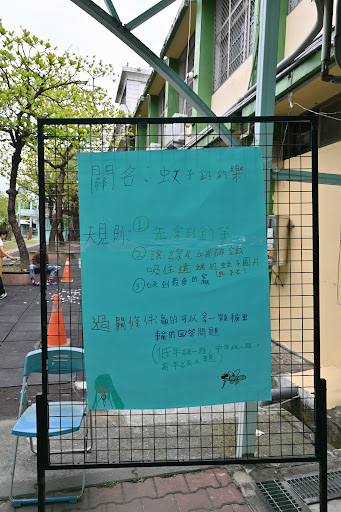 關名:蚊子釣釣樂
規則:①先拿到釣竿
②讓線
吸住這 蚊子圖片
③吸到最多的贏
過關條件:贏的可以拿一顆糖果
輸的回答問題
(低年級一題,中年級二題,
高年級三題)